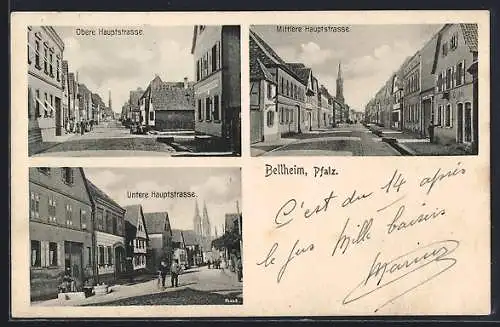 Obere Hauptstrasse.
Mittlere Hauptstrasse.
Untere Hauptstrasse.
Bellheim, Pfalz.
C'est du 14 après
le jus
Mille baisers
Marius